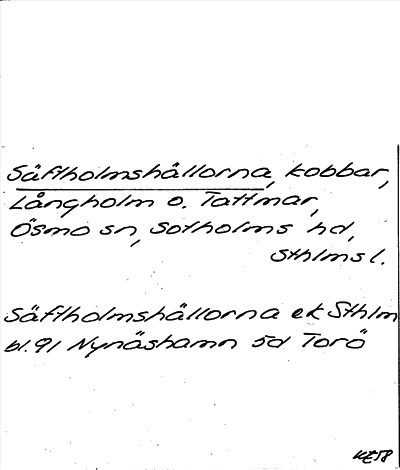 Säftholmshällorna, kobbar,
Långholm o. Tattmar,
Ösmo sn, Sotholms hd,
Sthlms l.
Säftholmshällorna ek Sthlm
bl. 91 Nynäshamn 5d Torö
KE58